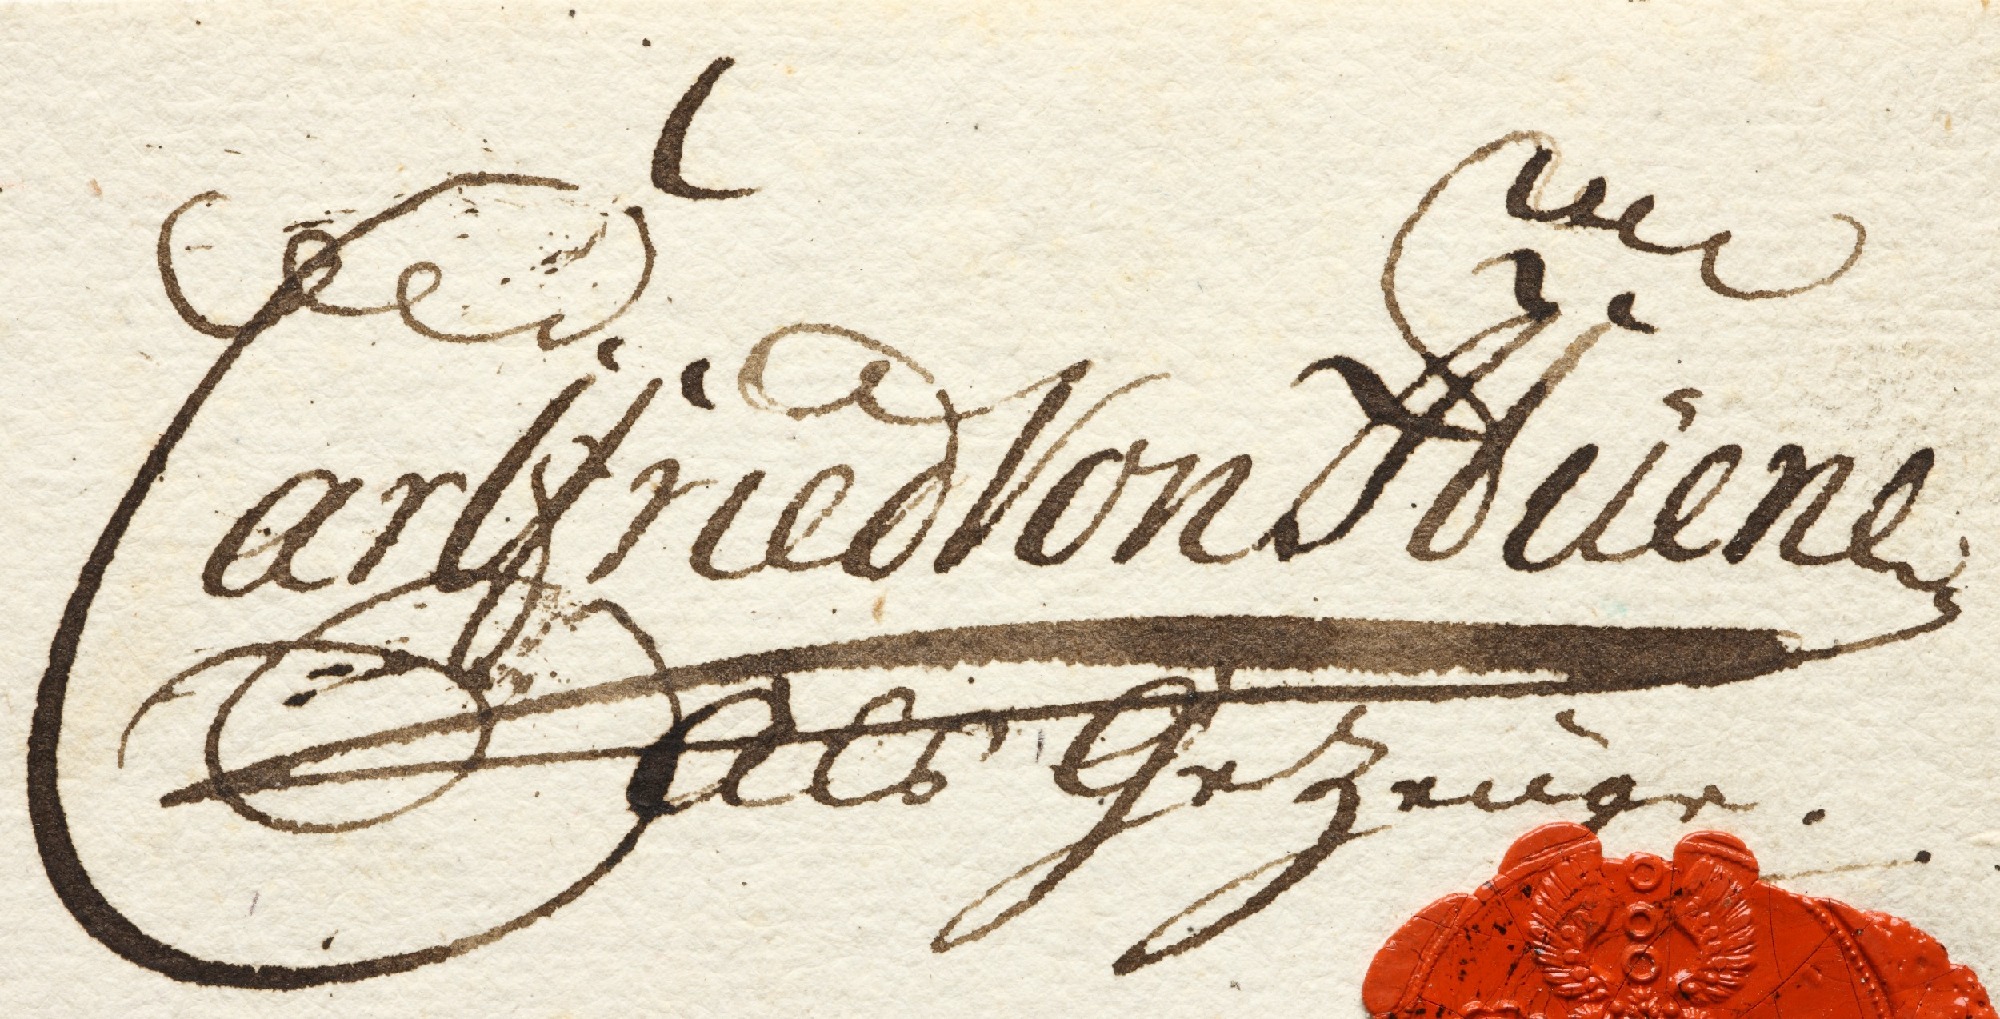 Carlfried von Hüene
als Gezeuge.